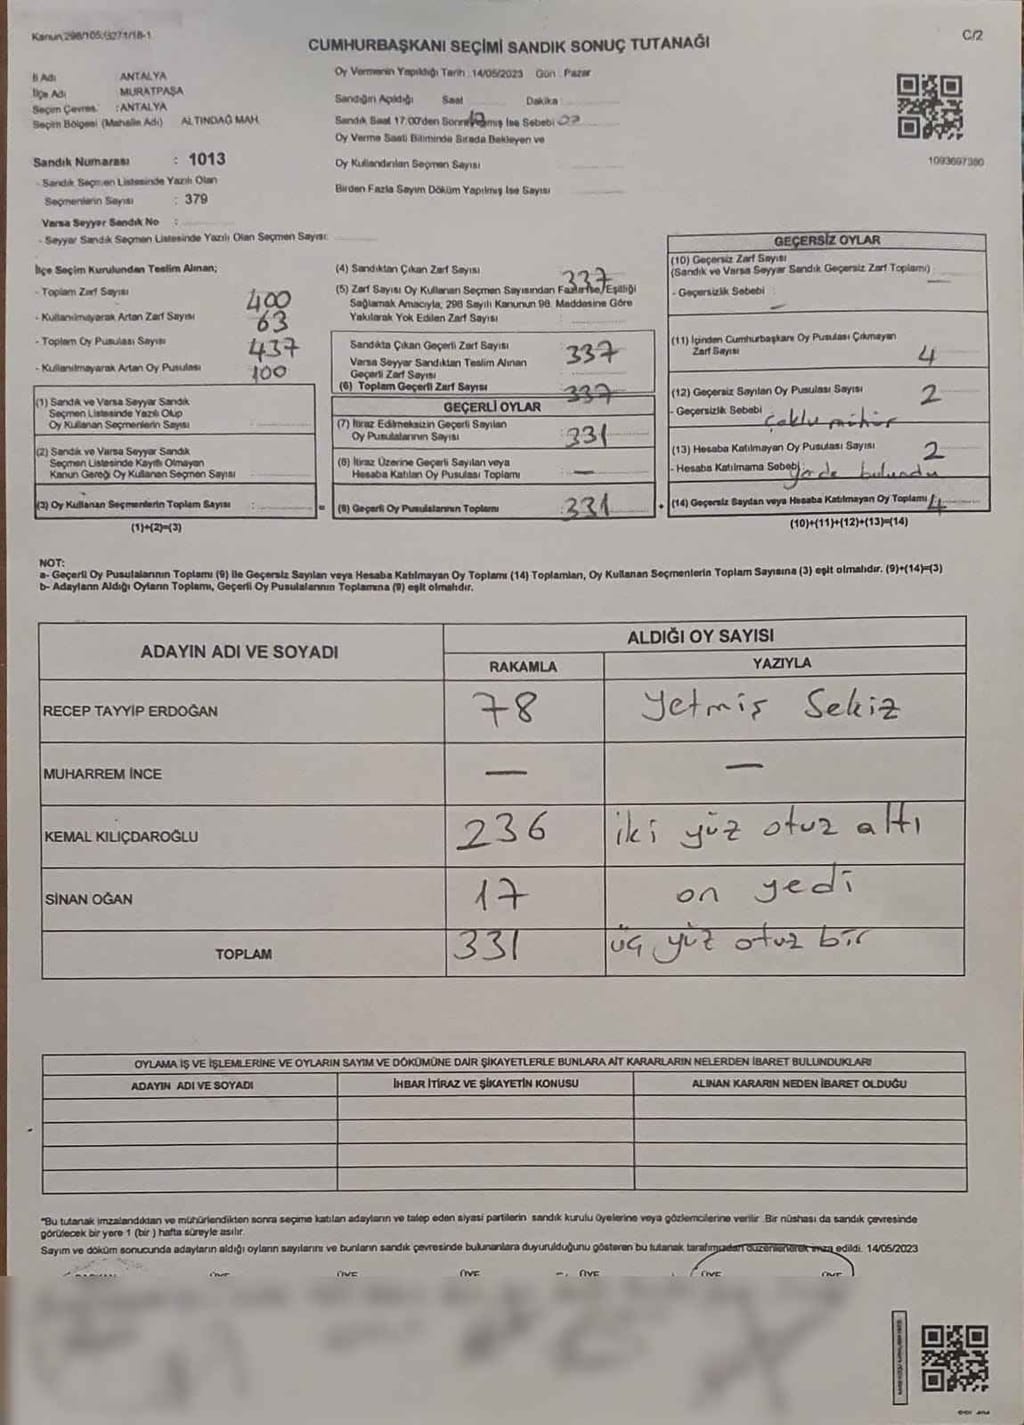 Kanun 298/105:(3271/18-1
C/2
CUMHURBAŞKANI SEÇİMİ SANDIK SONUÇ TUTANAĞI
İl Adı ANTALYA
İlçe Adı MURATPAŞA
Seçim Çevres. : ANTALYA
Seçim Bölgesi (Mahalle Adı) ALTINDAĞ MAH.
Oy Vermenin Yapıldığı Tarih : 14/05/2023 Gün : Pazar
Sandığın Açıldığı Saat Dakika
Sandık Saat 17:00'den Sonra
Oy Verme Saati Bitiminde Sırada Bekleyen ve
Oy Kullandırılan Seçmen Sayısı
Birden Fazla Sayım Döküm Yapılmış İse Sayısı
1093697380
Sandık Numarası : 1013
- Sandık Seçmen Listesinde Yazılı Olan
Seçmenlerin Sayısı : 379
Varsa Seyyar Sandık No :
- Seyyar Sandık Seçmen Listesinde Yazılı Olan Seçmen Sayısı:
İlçe Seçim Kurulundan Teslim Alınan;
- Toplam Zarf Sayısı 400
- Kullanılmayarak Artan Zarf Sayısı 63
- Toplam Oy Pusulası Sayısı 437
- Kullanılmayarak Artan Oy Pusulası 100
(1) Sandık ve Varsa Seyyar Sandık
Seçmen Listesinde Yazılı Olup
Oy Kullanan Seçmenlerin Sayısı :
(2) Sandık ve Varsa Seyyar Sandık
Seçmen Listesinde Kayıtlı Olmayan
Kanun Gereği Oy Kullanan Seçmen Sayısı :
(3) Oy Kullanan Seçmenlerin Toplam Sayısı :
(1)+(2)=(3)
(4) Sandıktan Çıkan Zarf Sayısı 337
(5) Zarf Sayısı Oy Kullanan Seçmen Sayısından Fazla İse, Eşitliği
Sağlamak Amacıyla, 298 Sayılı Kanunun 98. Maddesine Göre
Yakılarak Yok Edilen Zarf Sayısı
Sandıkta Çıkan Geçerli Zarf Sayısı 337
Varsa Seyyar Sandıktan Teslim Alınan
Geçerli Zarf Sayısı
(6) Toplam Geçerli Zarf Sayısı 337
GEÇERLİ OYLAR
(7) İtiraz Edilmeksizin Geçerli Sayılan
Oy Pusulalarının Sayısı : 331
(8) İtiraz Üzerine Geçerli Sayılan veya
Hesaba Katılan Oy Pusulası Toplamı : —
= (9) Geçerli Oy Pusulalarının Toplamı : 331 +
GEÇERSİZ OYLAR
(10) Geçersiz Zarf Sayısı
(Sandık ve Varsa Seyyar Sandık Geçersiz Zarf Toplamı) —
- Geçersizlik Sebebi : —
(11) İçinden Cumhurbaşkanı Oy Pusulası Çıkmayan
Zarf Sayısı 4
(12) Geçersiz Sayılan Oy Pusulası Sayısı 2
- Geçersizlik Sebebi çoklu mühür
(13) Hesaba Katılmayan Oy Pusulası Sayısı 2
- Hesaba Katılmama Sebebi yerde bulundu
(14) Geçersiz Sayılan veya Hesaba Katılmayan Oy Toplamı 4
(10)+(11)+(12)+(13)=(14)
NOT:
a- Geçerli Oy Pusulalarının Toplamı (9) ile Geçersiz Sayılan veya Hesaba Katılmayan Oy Toplamı (14) Toplamları, Oy Kullanan Seçmenlerin Toplam Sayısına (3) eşit olmalıdır. (9)+(14)=(3)
b- Adayların Aldığı Oyların Toplamı, Geçerli Oy Pusulalarının Toplamına (9) eşit olmalıdır.
ADAYIN ADI VE SOYADI
ALDIĞI OY SAYISI
RAKAMLA YAZIYLA
RECEP TAYYİP ERDOĞAN 78 Yetmiş Sekiz
MUHARREM İNCE — —
KEMAL KILIÇDAROĞLU 236 iki yüz otuz altı
SİNAN OĞAN 17 on yedi
TOPLAM 331 üç yüz otuz bir
OYLAMA İŞ VE İŞLEMLERİNE VE OYLARIN SAYIM VE DÖKÜMÜNE DAİR ŞİKAYETLERLE BUNLARA AİT KARARLARIN NELERDEN İBARET BULUNDUKLARI
ADAYIN ADI VE SOYADI İHBAR İTİRAZ VE ŞİKAYETİN KONUSU ALINAN KARARIN NEDEN İBARET OLDUĞU
"Bu tutanak imzalandıktan ve mühürlendikten sonra seçime katılan adayların ve talep eden siyasi partilerin sandık kurulu üyelerine veya gözlemcilerine verilir. Bir nüshası da sandık çevresinde
görülecek bir yere 1 (bir) hafta süreyle asılır.
Sayım ve döküm sonucunda adayların aldığı oyların sayılarını ve bunların sandık çevresinde bulunanlara duyurulduğunu gösteren bu tutanak tarafımızdan düzenlenerek imza edildi. 14/05/2023